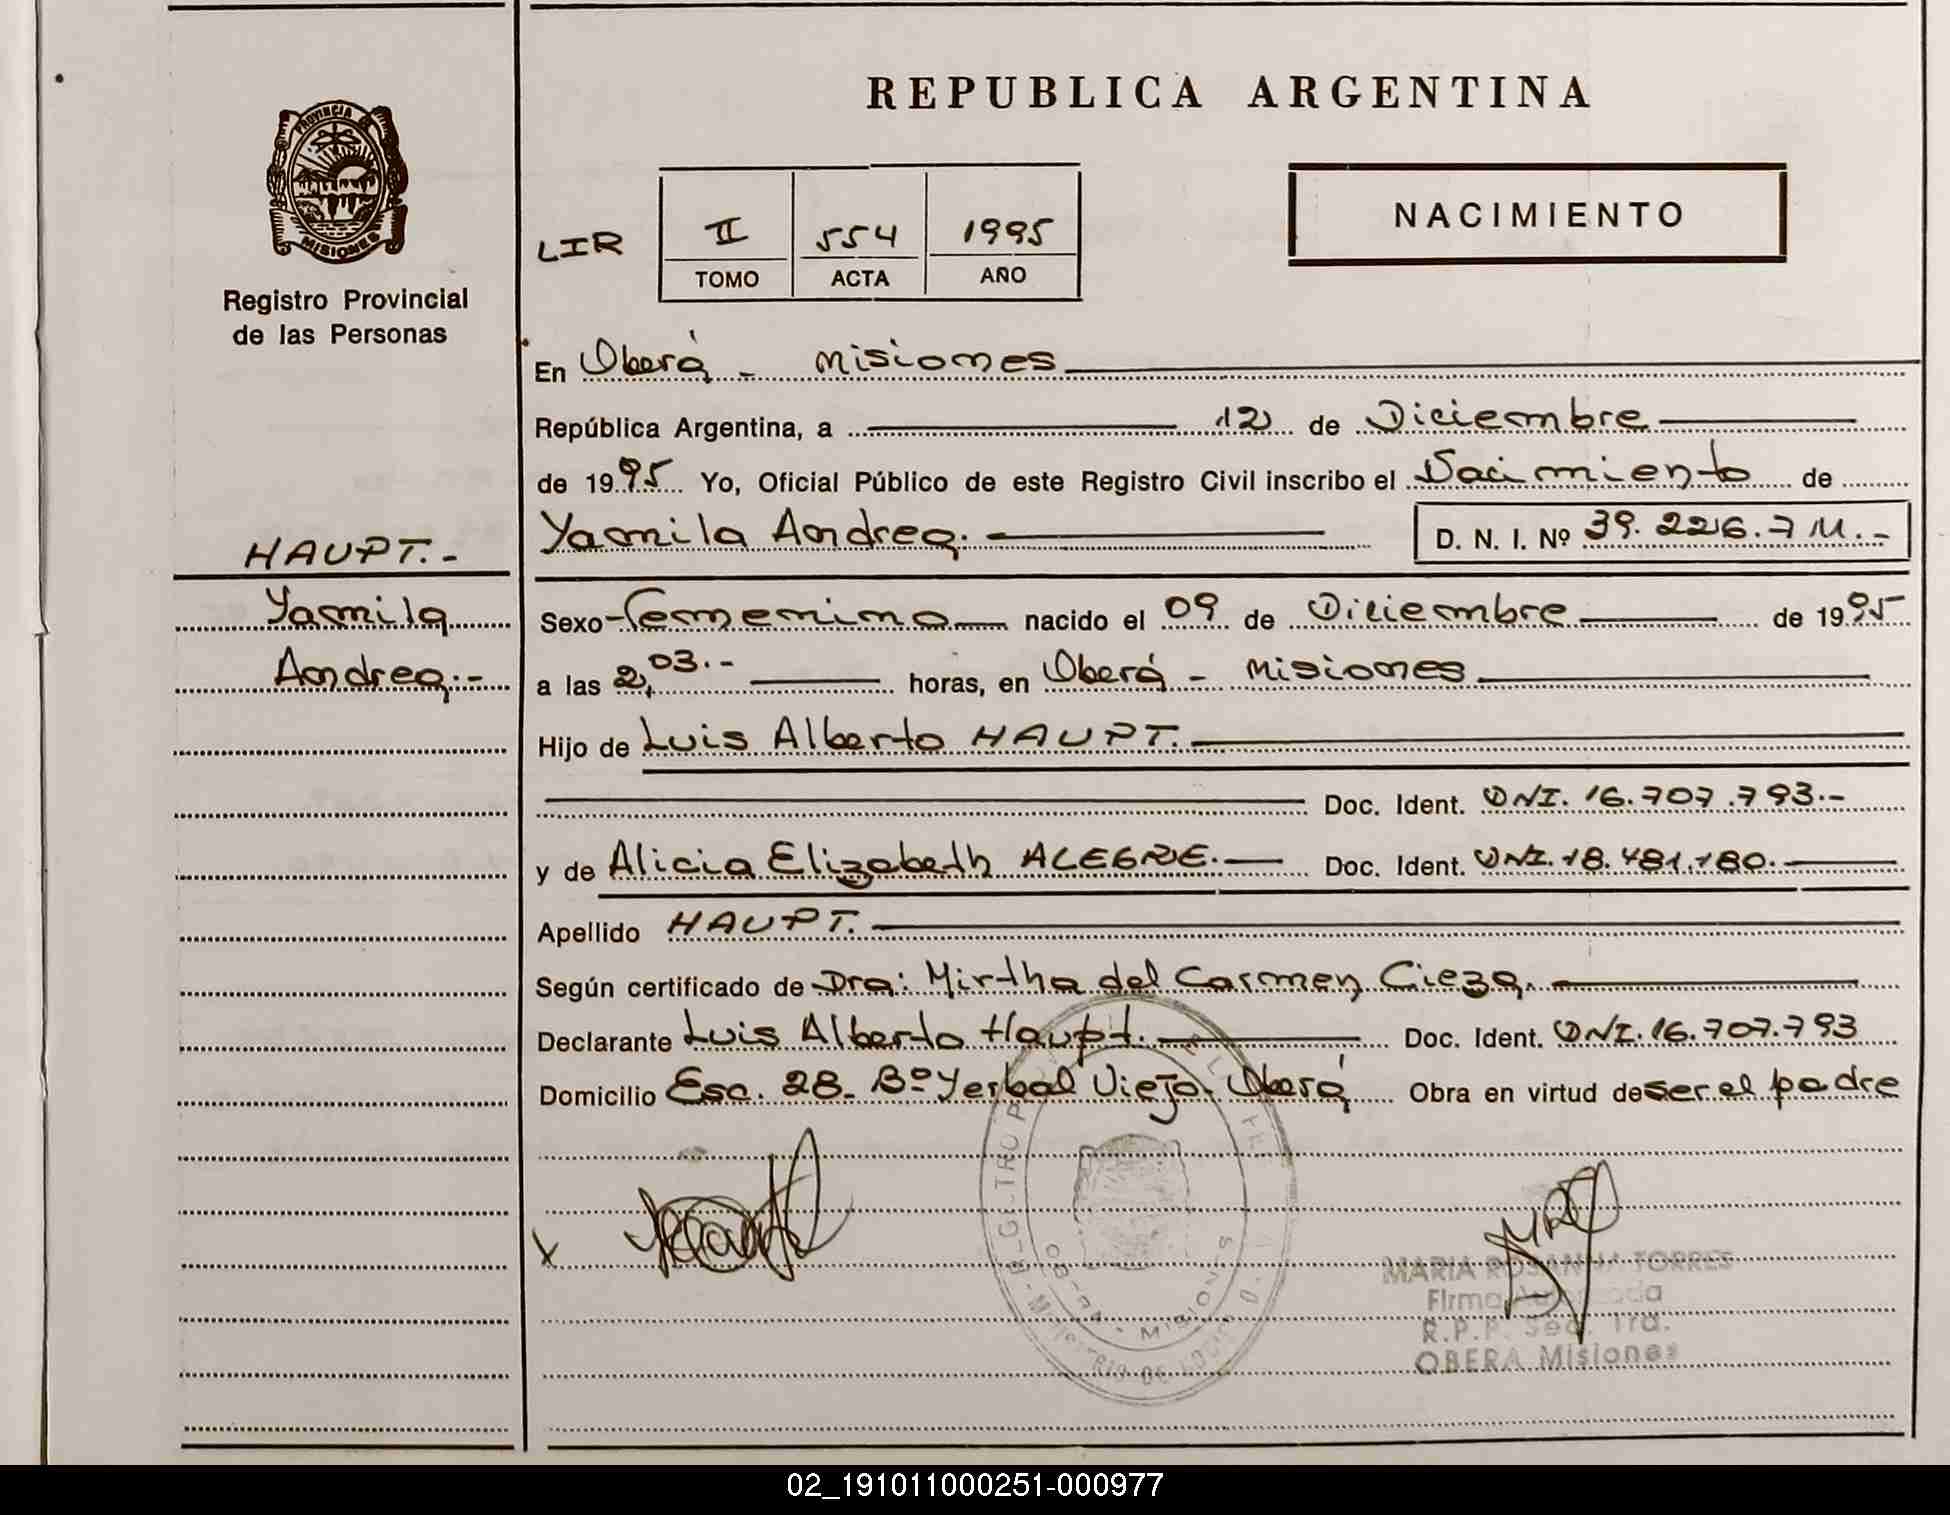 REPUBLICA ARGENTINA
PROVINCIA DE
MISIONES
Registro Provincial
de las Personas
NACIMIENTO
LIR II 554 1995
TOMO ACTA AÑO
En Oberá - Misiones
República Argentina, a 12 de Diciembre
de 1995 Yo, Oficial Público de este Registro Civil inscribo el Nacimiento de
Yamila Andrea. D. N. I. Nº 39.226.711.-
HAUPT.-
Yamila
Andrea.-
Sexo Femenino nacido el 09 de Diciembre de 1995
a las 2,03.- horas, en Oberá - Misiones
Hijo de Luis Alberto HAUPT.
Doc. Ident. DNI. 16.707.793.-
y de Alicia Elizabeth ALEGRE. Doc. Ident. DNI. 18.481.180.
Apellido HAUPT.
Según certificado de Dra: Mirtha del Carmen Cieza.
Declarante Luis Alberto Haupt. Doc. Ident. DNI. 16.707.793
Domicilio Esc. 28- Bº Yerbal Viejo- Oberá Obra en virtud de ser el padre
X
OBERA - MISIONES
MARIA ROSANNA TORRES
Firma Autorizada
R.P.P. Sec. 1ra.
OBERA Misiones
02_191011000251-000977